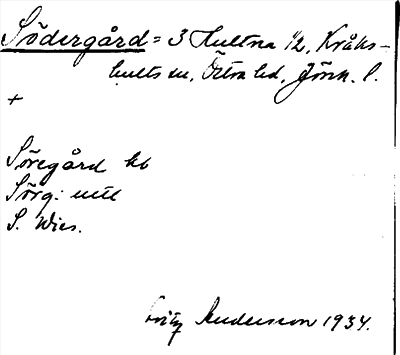 Södergård = 3 Hultna 1/2, Kråks-
hults sn, Östra hd, Jönk. l.
+
Söregård hb
Sörg: utt
S. Wies.
Fritz Andersson 1934.